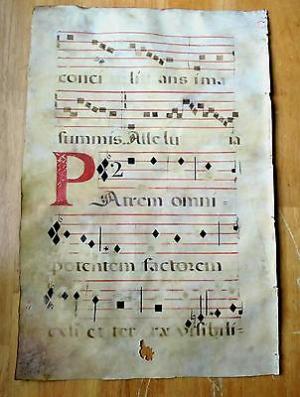 conci ans ima
summis. Allelu ia
P 2
Atrem omni-
potentem factorem
celi et ter ræ visibili-